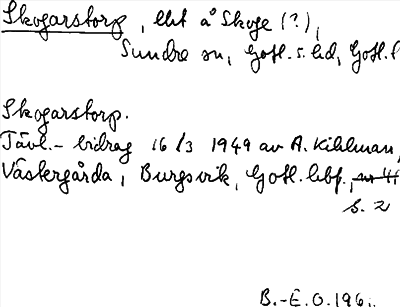 Skogarstorp, ebt å Skoge (?),
Sundre sn, Gotl. s. hd, Gotl. l
Skogarstorp.
Tävl.- bidrag 16/3 1949 av A. Kihlman,
Västergårda, Burgsvik, Gotl. hbf.,
s. 2
B.-E. O. 196.